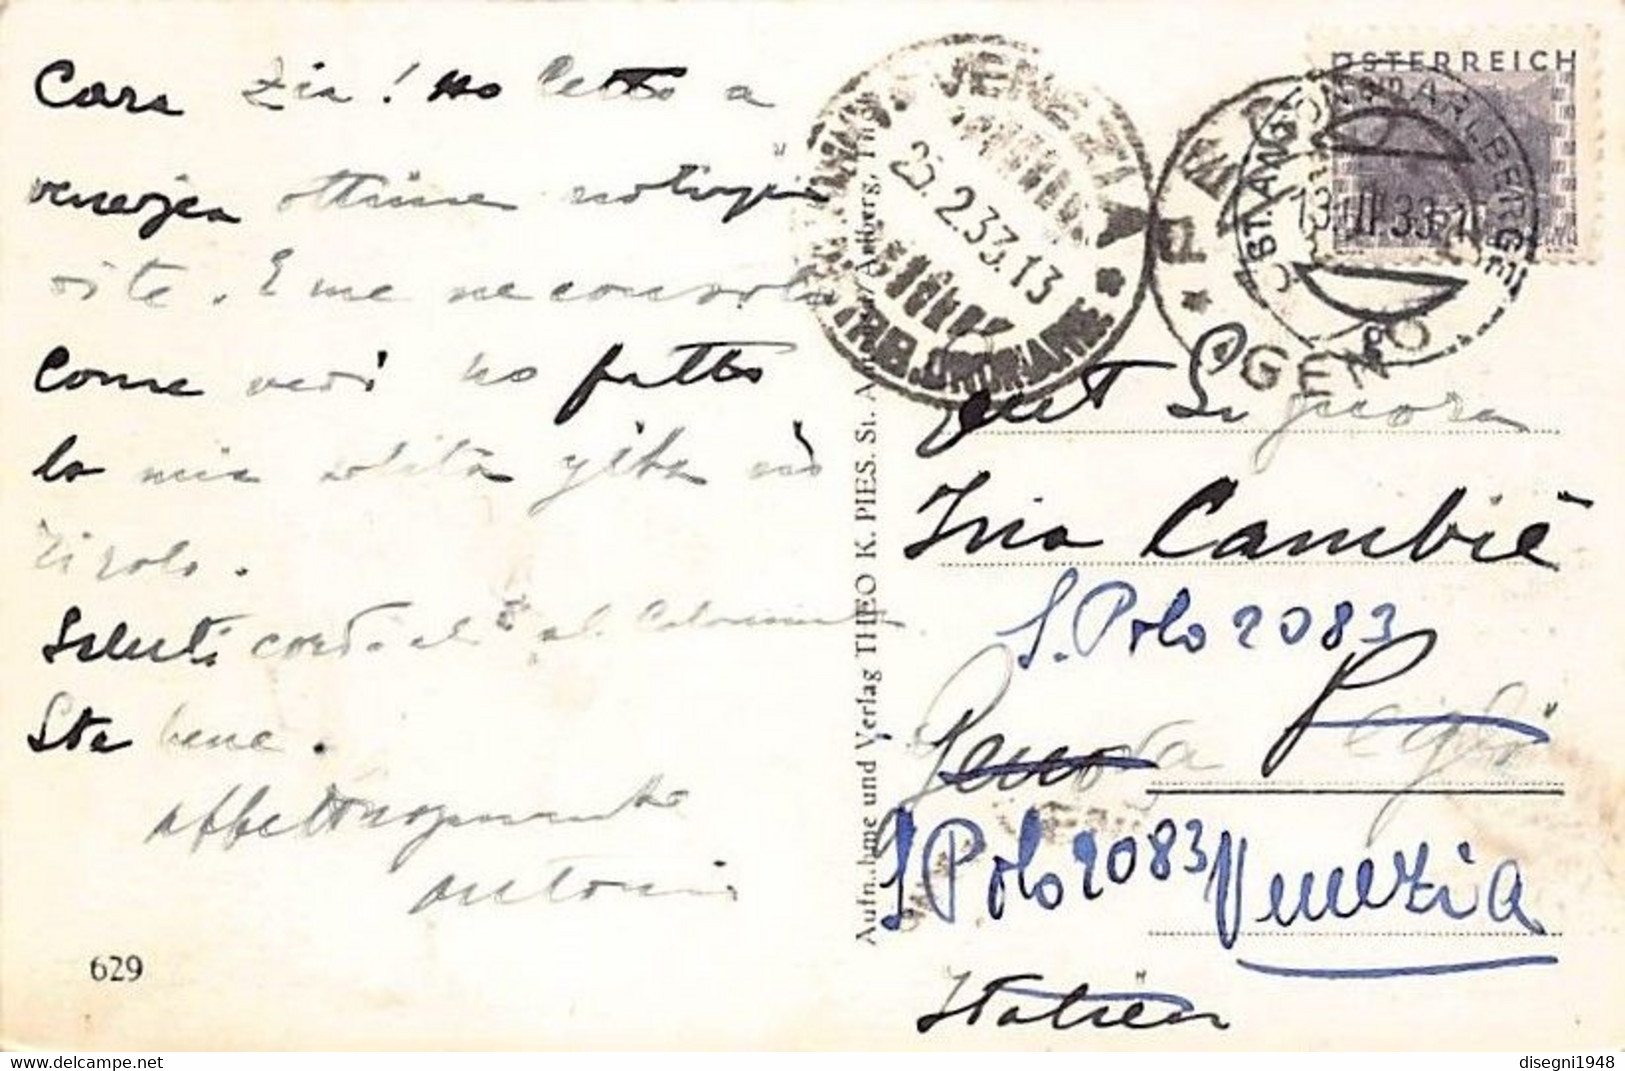 Cara Zia! Ho letto a
Venezia ottime notizie
di te. E me ne consolo
Come vedi ho fatto
la mia solita gita nel
Tirolo.
Saluti cordiali al
Sta bene.
Affettuosamente
Antonio
629
Aufnahme und Verlag THEO K. PIES, St. Anton Arlberg, Tirol
VENEZIA
25.2.33.13
ÖSTERREICH
ST. ANTON AM ARLBERG
GENO
Gent Signora
Ina Cambiè
S. Polo 2083
Genova
S Polo 2083 Venezia
Italien
disegni1948